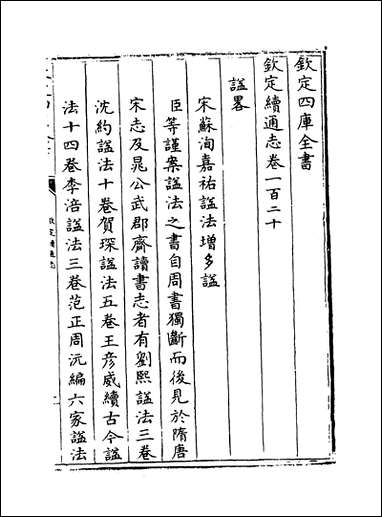 欽定四庫全書
欽定續通志卷一百二十
諡畧
宋蘇洵嘉祐諡法增多諡
臣等謹案諡法之書自周書獨斷而後見於隋唐
宋志及晁公武郡齋讀書志者有劉熙諡法三卷
沈約諡法十卷賀琛諡法五卷王彦威續古今諡
法十四卷李涪諡法三卷范正周沆編六家諡法